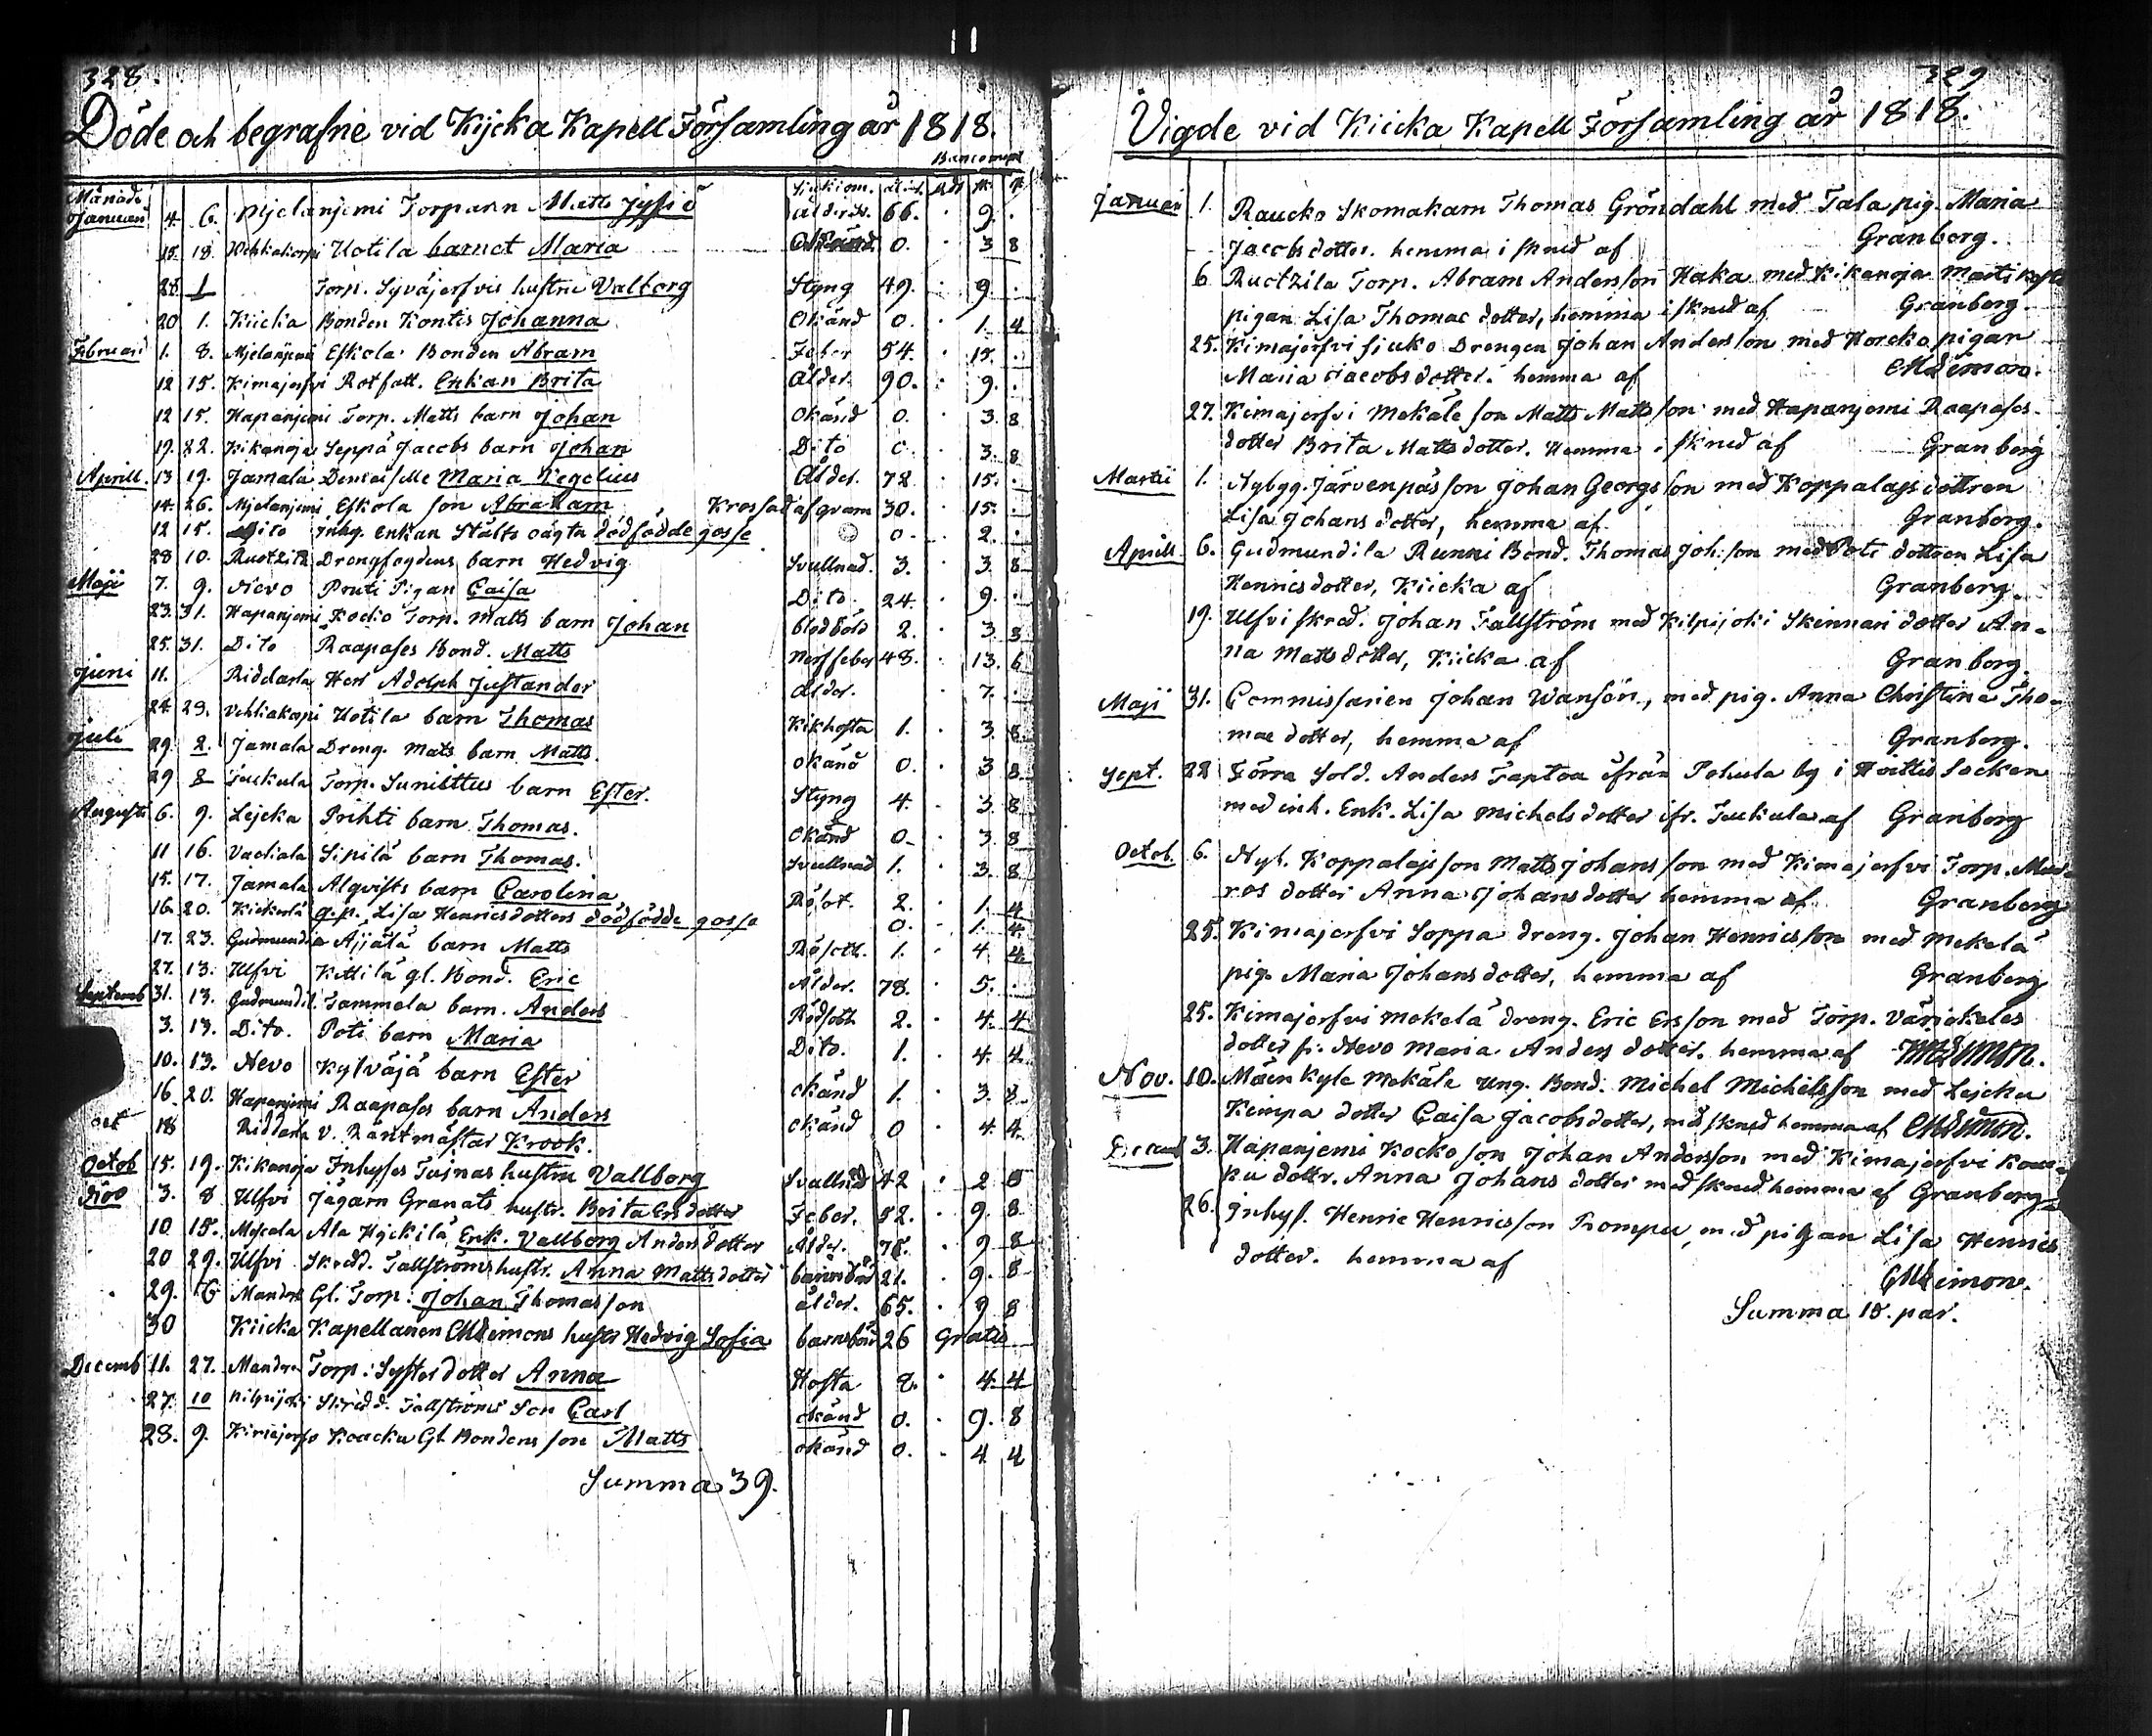 328.
Döde och begrafne vid Kijcka Kapell Församling år 1818.
Månad Sjukdom. R.
Januari 4. 6. Mjelänjemi Torparn Matts 66. 9.
15. 18. Uotila barnet Maria Okänd 0. 3 8
28. 1 Torp. hustru Valborg Styng 49. 9.
20 1. Kiicka Bonden Kontis Johanna Okänd 0. 1. 4
Februari 1. 8. Mjelänjemi Eskola Bonden Abram Feber 54. 15.
12 15. Kimajerfvi Rotfatt. Enkan Brita Ålder 90. 9.
12 15. Hapanjemi Torp. Matts barn Johan Okänd 0. 3. 8
19. 22. Kikanoja Seppä Jacobs barn Johan Dito 0. 3. 8
Aprill. 13 19. Jamala Demoiselle Maria Kegelius Ålder. 72. 15.
14. 26. Mjelänjemi Eskola son Abraham Krossad af gram 30. 15.
12 15. Dito inhy. Enkan Stålts oägta dödfödde gosse 0. 2.
28 10. Ruotzila Drengfogdens barn Hedvig Svullnad. 3. 3 8
Maji 7. 9. Nevo Pruti Pigan Caisa Dito 24. 9.
23. 31. Hapanjemi Kocko Torp. Matts barn Johan 2. 3. 8
25. 31. Dito Raapases Bond. Matts Nerffeber 48. 13. 6
Juni 11. Riddarla Herr Adolph Justander Ålder. 7.
24 29. Uotila barn Thomas Kikhosta 1. 3 8
Juli 29. 2. Jamala Dreng. Mats barn Matts. Okänd 0. 3 8.
29 8 Juckula Torp. barn Ester. Styng 4. 3. 8
Augusti 6. 9. Lejcka Prihti barn Thomas. Okänd 0. 3. 8
11 16. Sipilä barn Thomas. Svullnad 1. 3. 8
15. 17. Jamala Alqvists barn Carolina Rödsot. 2. 1 4
16. 20. q.p. Lisa Henricsdotters dödfödde gosse 0. 1. 4.
17. 23. Gudmundila Äijälä barn Matts Rödsoth. 1. 4 4.
27. 13. Ulfvi Kittilä gl. Bond. Eric Ålder. 78. 5.
Septemb 31. 13. Gudmundil. Tammela barn. Anders Rödsoth 2. 4. 4
3. 13. Dito. Poti barn Maria Dito. 1. 4. 4.
10. 13. Nevo Kylväjä barn Ester okänd 1. 3. 8
16. 20. Hapanjemi Raapases barn Anders okänd 0 4. 4.
18 Riddarla v. Räntmästar Krook.
Octob 15. 19. Kikanoja Inhyses hustru Vallborg Svullnad 42 2 8
Nov 3. 8 Ulfvi Jägarn Granats hustr. Brita Ersdotter Feber. 52. 9. 8
10 15. Ala Hyckilä Enk. Vallborg Andersdotter Ålder. 75. 9 8
20 29. Ulfvi Skredd. Tallströms hustr. Anna Mattsdotter barnsbörd 21. 9. 8
29. 6 Gl. Torp: Johan Thomasson ålder. 65. 9 8
30 Kiicka Kapellanen hustr Hedvig Sofia barnsbörd 26 Gratis
Decemb 11. 27. Torp: Systerdotter Anna Hosta 2. 4. 4
27. 10 Kilpijoki Skredd. Tallströms Son Carl okänd 0. 9. 8
28. 9. Kimajerfv Koucku Gl Bondens son Matts okänd 0. 4 4
Summa 39.
329
Vigde vid Kiicka Kapell Församling år 1818.
Januari 1. Raucko Skomakarn Thomas Gröndahl med Tala pig. Maria
Jacobsdotter. hemma i skrud af Granberg.
6 Ruotzila Torp. Abram Andersson Haka med Kikanoja
pigan Lisa Thomae dotter, hemma i skrud af Granberg.
25. Kimajerfvi Drengen Johan Andersson med pigan
Maria Jacobs dotter. hemma af
27. Kimajerfvi Mekäle son Matts Mattsson med Hapanjemi Raapases
dotter Brita Mattsdotter. Hemma i skrud af Granberg
Martii 1. Nybygg. Järvenpäs son Johan Georgsson med dottren
Lisa Johans dotter, hemma af Granberg.
Aprill 6. Gudmundila Runni Bond. Thomas Joh:son med Poti dottren Lisa
Henricsdotter, Kiicka af Granberg.
19. Ulfvi skred. Johan Tallström med Kilpijoki Skinnari dotter An-
na Mattsdotter, Kiicka af Granberg.
Maji 31. Commissarien Johan Wansén, med pig. Anna Christina Tho-
mae dotter, hemma af Granberg.
Sept. 22 Förra Sold. Anders Taptoa ifrån Pohula by i Socken
med inh. Enk. Lisa Michelsdotter ifr. Juckula af Granberg
Octob. 6. Nyb. son Matts Johansson med Kimajerfvi Torp.
ros dotter Anna Johansdotter hemma af Granberg
25. Kimajerfvi Soppa dreng. Johan Henricsson med Mekelä
pig. Maria Johansdotter, hemma af Granberg
25. Kimajerfvi Mekelä dreng. Eric Ersson med Torp.
dotter fr. Nevo Maria Anders dotter. hemma af
Nov. 10. Kyle Mekäle ung. Bond. Michel Michelsson med Lejcka
Kempa dotter Caisa Jacobsdotter, med skrud hemma af
Decemb 3. Hapanjemi Kocko son Johan Andersson med Kimajerfvi Kouc-
ku dottr. Anna Johans dotter med skrud hemma af Granberg
26. Inhys. Henric Henricsson Rompu, med pigan Lisa Henrics
dotter. hemma af
Summa 15. par.